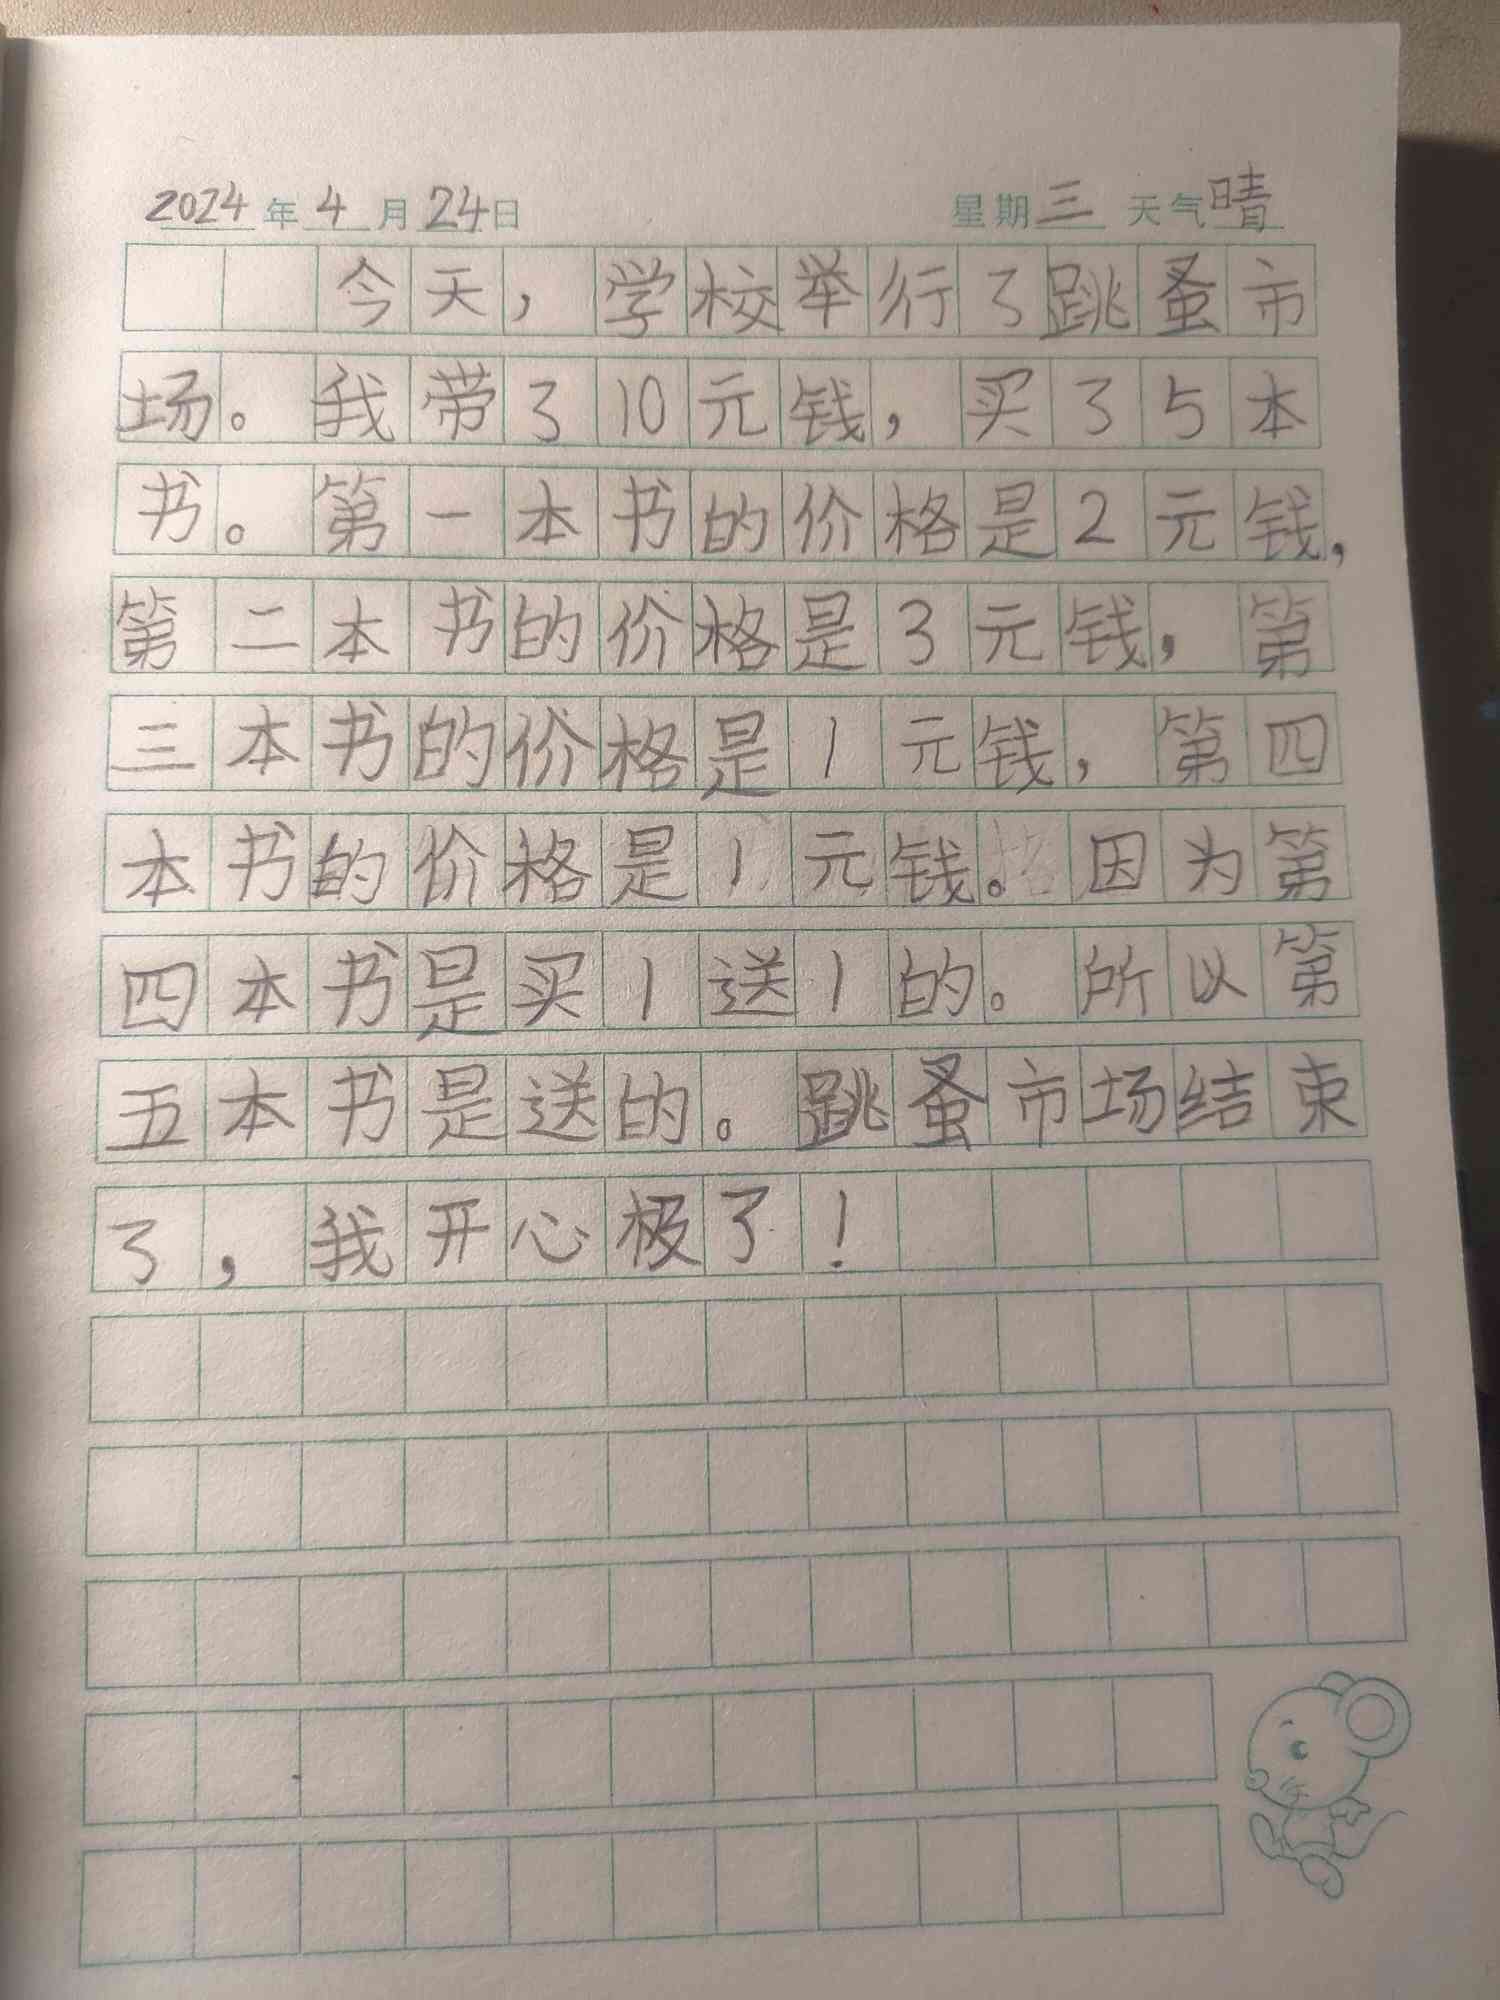 2024年4月24日 星期三 天气晴
今天，学校举行了跳蚤市
场。我带了10元钱，买了5本
书。第一本书的价格是2元钱，
第二本书的价格是3元钱，第
三本书的价格是1元钱，第四
本书的价格是1元钱。因为第
四本书是买1送1的。所以第
五本书是送的。跳蚤市场结束
了，我开心极了！